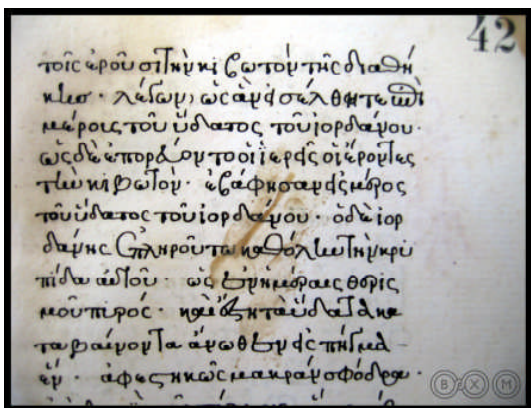 42
τοῖς ἐροῦσι τὴν κιβωτὸν τῆς διαθή
κης · λέγων, ὡς ἂν εἰσέλθητε ἐπὶ
μέρους τοῦ ὕδατος τοῦ ἰορδάνου ·
ὡς δὲ ἐπορεύοντο οἱ ἱερεῖς οἱ αἴροντες
τὴν κιβωτὸν · ἐβάφησαν εἰς μέρος
τοῦ ὕδατος τοῦ ἰορδάνου · ὁ δὲ ἰορ
δάνης ἐπληροῦτο καθόλην τὴν κρη
πίδα αὐτοῦ · ὡς ἐν ἡμέραις θερισ
μοῦ πυρός · καὶ ἔστη τὰ ὕδατα
καταβαίνοντα ἄνωθεν εἰς πῆγμα
ἕν · ἀφεστηκὼς μακρὰν σφόδρα ·
B X M